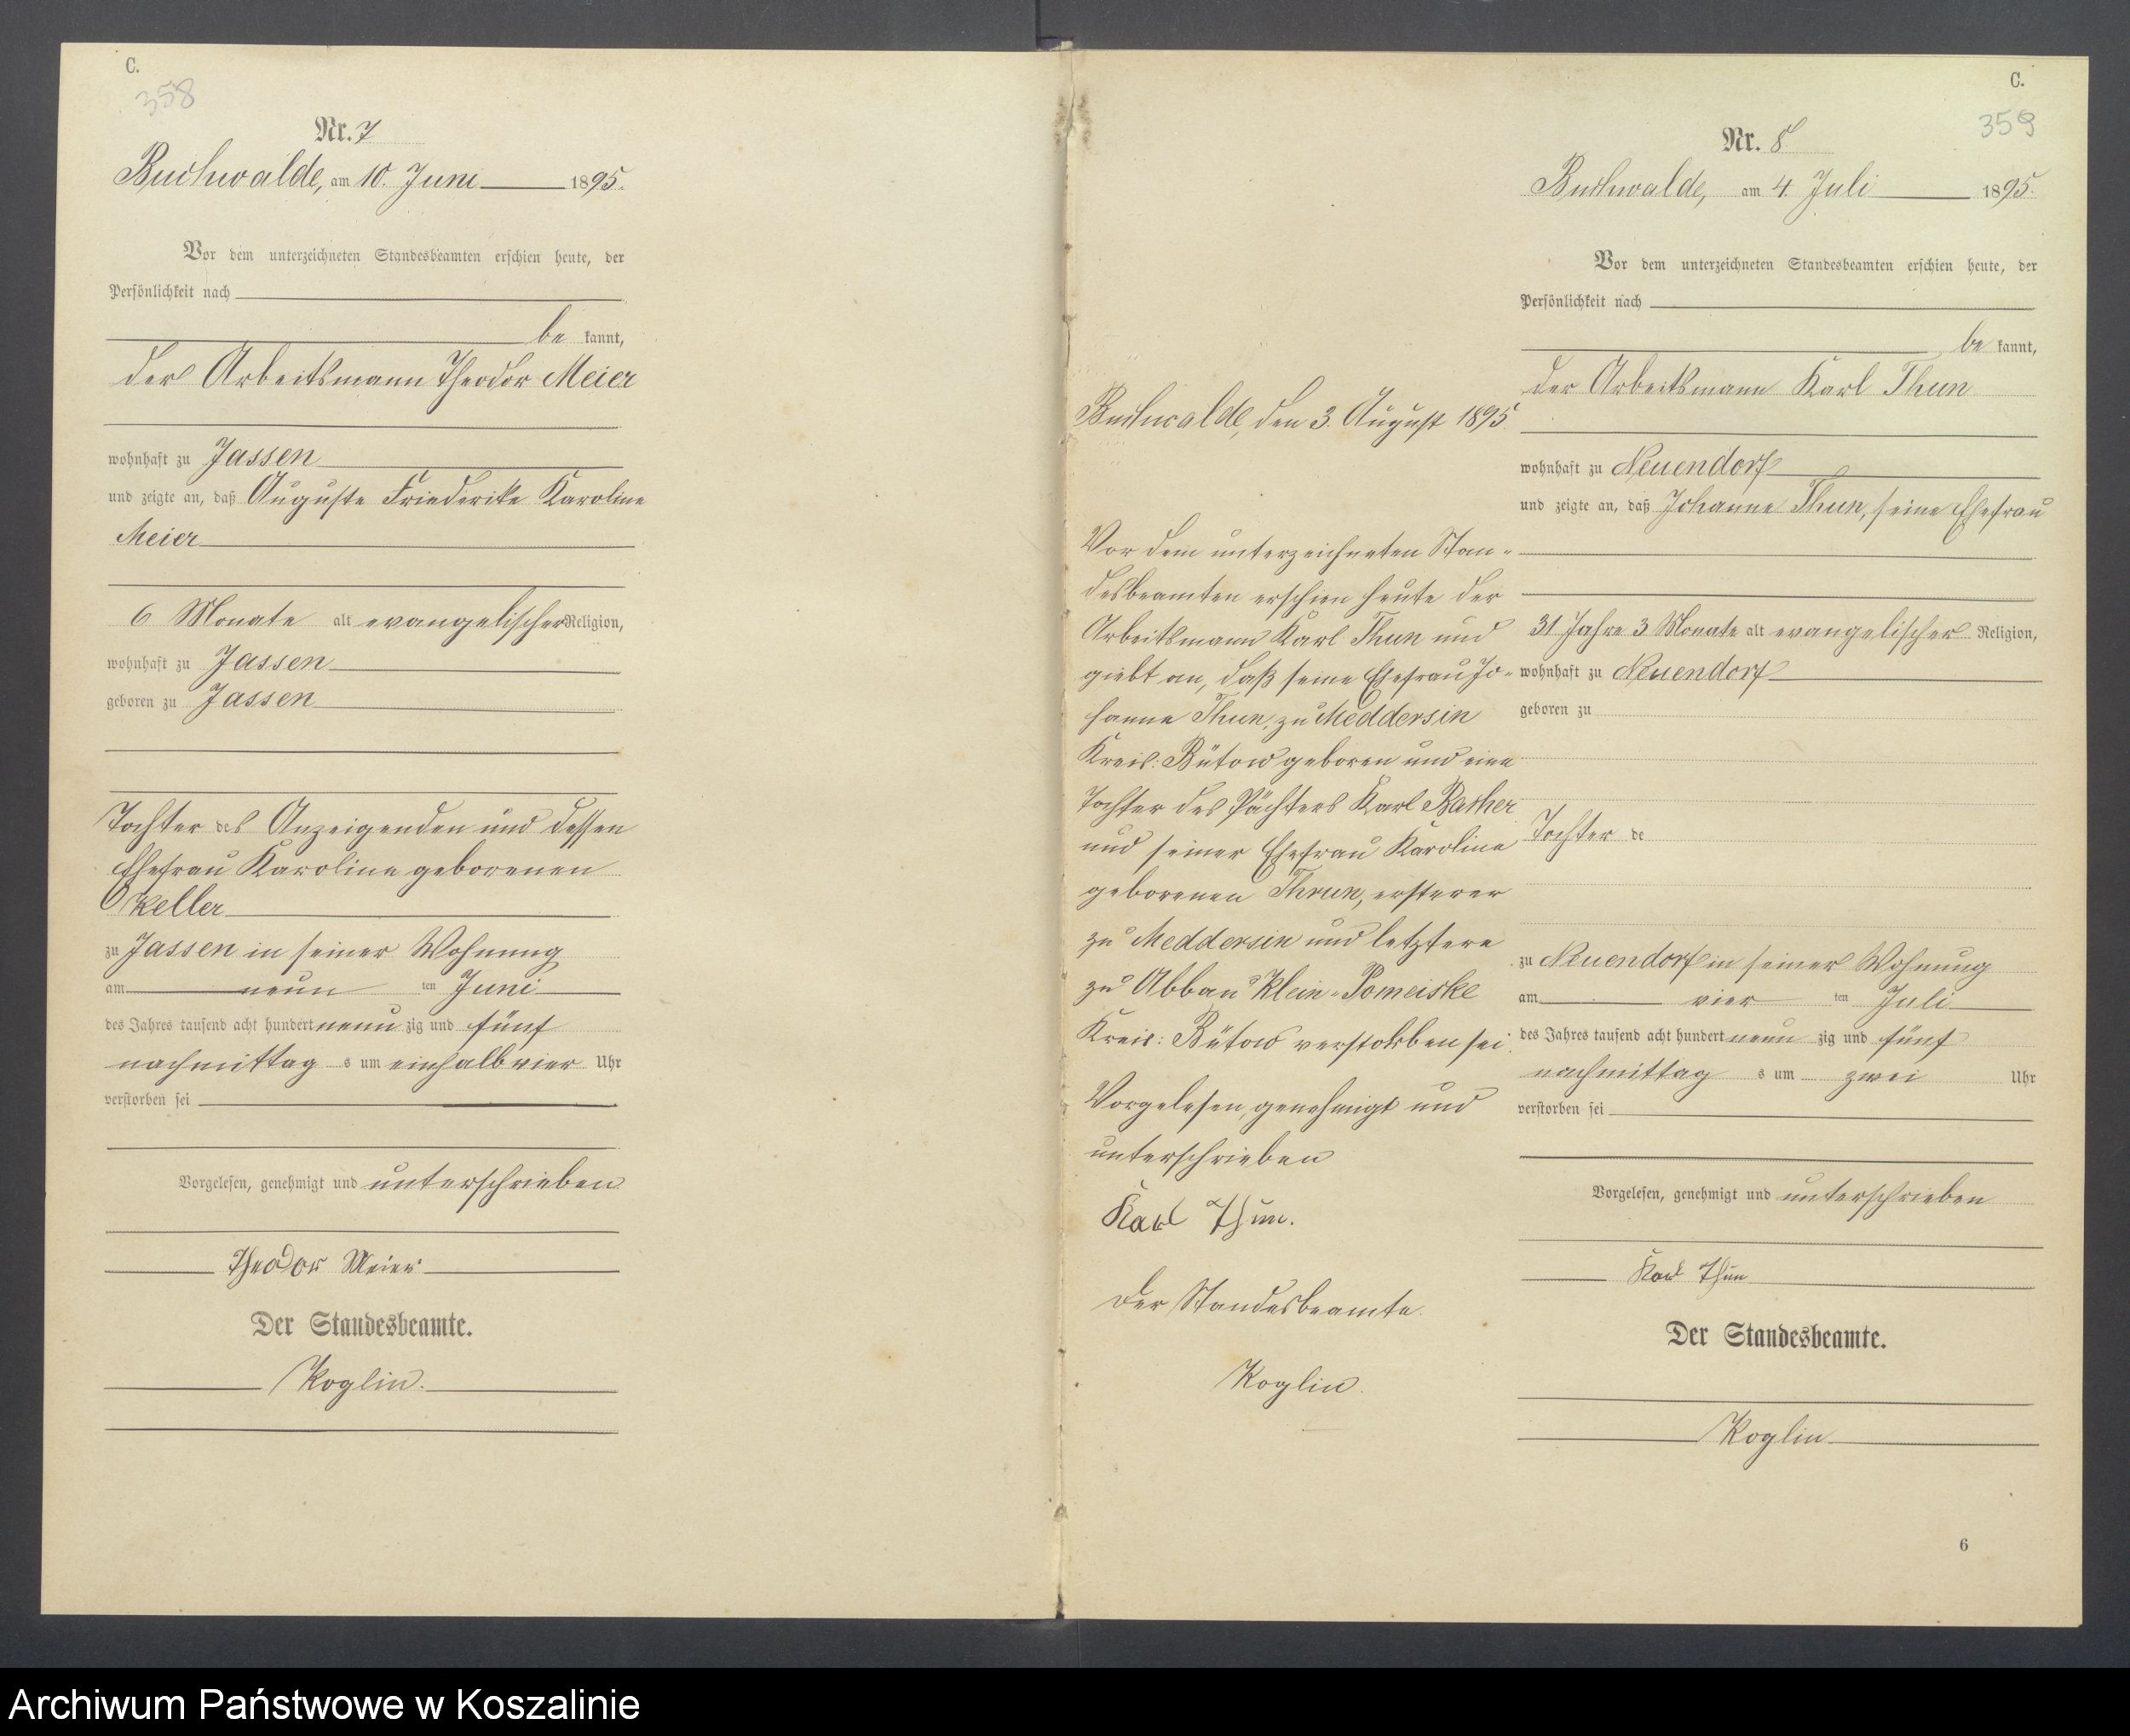 C.
358
Nr. 7
Buchwalde, am 10. Juni 1895.
Vor dem unterzeichneten Standesbeamten erschien heute, der
Persönlichkeit nach
be kannt,
der Arbeitsmann Theodor Meier
wohnhaft zu Jassen
und zeigte an, daß Auguste Friederike Karoline
Meier
6 Monate alt evangelischer Religion,
wohnhaft zu Jassen
geboren zu Jassen
Tochter des Anzeigenden und dessen
Ehefrau Karoline geborenen
Keller
zu Jassen in seiner Wohnung
am neun ten Juni
des Jahres tausend acht hundert neun zig und fünf
nachmittag s um einhalb vier Uhr
verstorben sei
Vorgelesen, genehmigt und unterschrieben
Theodor Meier
Der Standesbeamte.
Koglin.
Buchwalde, den 3. August 1895.
Vor dem unterzeichneten Stan-
desbeamten erschien heute der
Arbeitsmann Karl Thun und
giebt an, daß seine Ehefrau Jo-
hanne Thun, zu Meddersin
Kreis: Bütow geboren und eine
Tochter des Pächters Karl Rather
und seiner Ehefrau Karoline
geborenen Thrun, ersterer
zu Meddersin und letztere
zu Abbau Klein-Pomeiske
Kreis: Bütow verstorben sei.
Vorgelesen, genehmigt und
unterschrieben
Karl Thun.
Der Standesbeamte.
Koglin.
C.
359
Nr. 8
Buchwalde, am 4. Juli 1895.
Vor dem unterzeichneten Standesbeamten erschien heute, der
Persönlichkeit nach
be kannt,
der Arbeitsmann Karl Thun
wohnhaft zu Neuendorf
und zeigte an, daß Johanne Thun, seine Ehefrau
31 Jahre 3 Monate alt evangelischer Religion,
wohnhaft zu Neuendorf
geboren zu
Tochter de
zu Neuendorf in seiner Wohnung
am vier ten Juli
des Jahres tausend acht hundert neun zig und fünf
nachmittag s um zwei Uhr
verstorben sei
Vorgelesen, genehmigt und unterschrieben
Karl Thun
Der Standesbeamte.
Koglin
6
Archiwum Państwowe w Koszalinie